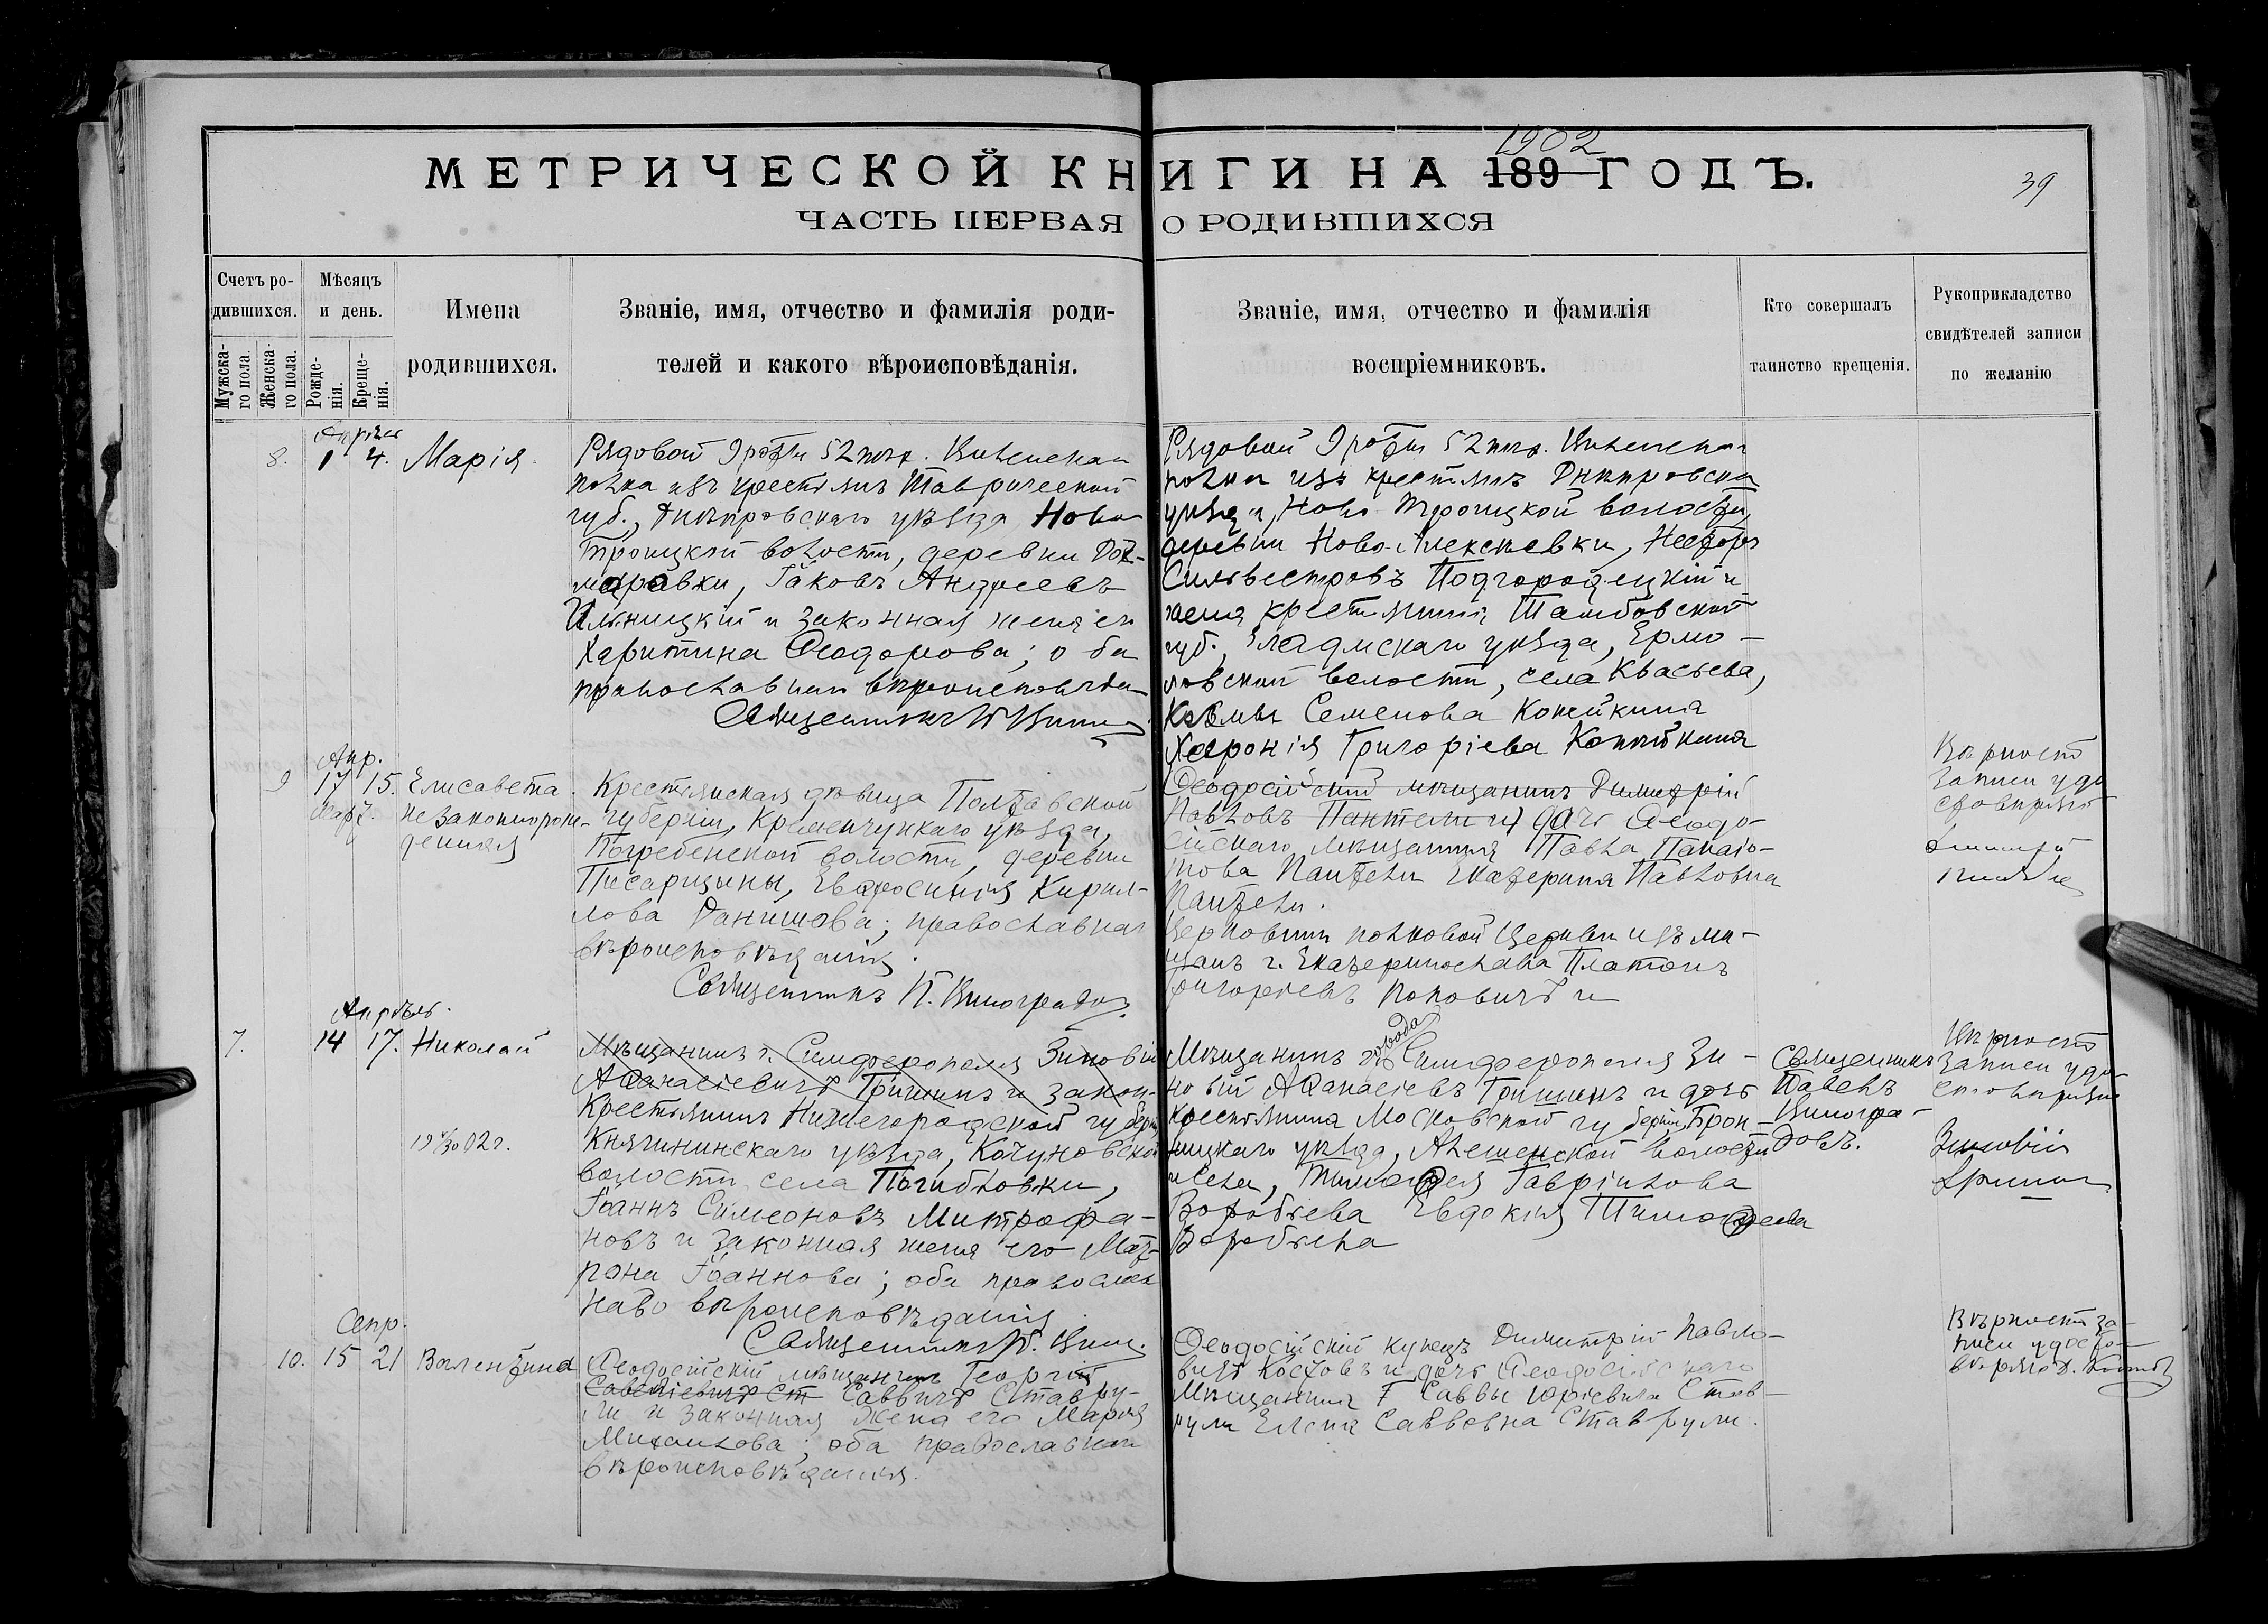 1902
МЕТРИЧЕСКОЙ КНИГИ НА 189 ГОДЪ.
39
ЧАСТЬ ПЕРВАЯ О РОДИВШИХСЯ
Счетъ ро-
дившихся.
Мужска-
го пола.
Женска-
го пола.
Мѣсяцъ
и день.
Рожде-
нія.
Креще-
нія.
Имена
родившихся.
Званіе, имя, отчество и фамилія роди-
телей и какого вѣроисповѣданія.
Званіе, имя, отчество и фамилія
воспріемниковъ.
Кто совершалъ
таинство крещенія.
Рукоприкладство
свидѣтелей записи
по желанію
8.
1 4.
Марія
Рядовой 9 роты 52 пѣх. Виленскаго
полка изъ крестьянъ Таврической
губ., Днѣпровскаго уѣзда Ново
Троицкой волости, деревни
Іаковъ Андреевъ
Ильницкій и законная жена его
Харитина Ѳеодорова; оба
православнаго вѣроисповѣда
Священникъ
Рядовой 9 роты 52 пѣх. Виленскаго
полка изъ крестьянъ Днѣпровска
уѣзда, Ново Троицкой волости,
деревни Ново-Алексѣевки,
Сильвестровъ Подгородецкій и
жена крестьянина Тамбовской
губ., Елатомскаго уѣзда, Ермо-
ловской волости, села
Козьмы Семенова
Григоріева
9
Апр.
17 15.
Март.
Елисавета
незаконнорож-
денная
Крестьянская дѣвица Полтавской
губерніи, Кременчугскаго уѣзда,
Погребенской волости, деревни
Писарщины, Евфросинія Кирил-
лова православнаго
вѣроисповѣданія.
Священникъ П. Виноградов
Ѳеодосійскій мѣщанинъ Димитрій
Павловъ Пантели и дочь Ѳеодо-
сійскаго мѣщанина Павла Панаіо-
това Пантели Екатерина Павловна
Пантели.
Церковникъ полковой церкви изъ мѣ-
щанъ г. Екатеринослава Платонъ
Григорьевъ Поповичъ и
Вѣрность
записи удо
стовѣряю
Апрѣль.
7.
14 17.
Николай
Мѣщанинъ г. Симферополя Зиновій
Аѳанасіевичъ Гришинъ и закон-
Крестьянинъ Нижегородской губерн
Княгининскаго уѣзда,
волости, села Погибловки,
Іоаннъ Симеоновъ Митрофа-
новъ и законная жена его Мат-
рона Іоаннова; оба православ
наго вѣроисповѣданія
Священникъ П. Вин.
Мѣщанинъ города Симферополя Зи-
новій Аѳанасіевъ Гришинъ и дочь
крестьянина Московской губерніи, Брон-
ницкаго уѣзда, волости
и села, Тимоѳея Гавріилова
Воробьева Евдокія Тимоѳеева
Воробьева
Священникъ
Павелъ
Виногра-
довъ.
Вѣрность
записи удо
стовѣряю
Зиновій
Гришин
Сепр.
10.
15 21
Валентина
Ѳеодосійскій мѣщанинъ Георгій
Саввичъ Ставру-
ли и законная жена его Марія
Михаилова; оба православнаго
вѣроисповѣданія.
Ѳеодосійскій купецъ Димитрій Павло-
вичъ и дочь Ѳеодосійскаго
мѣщанина Саввы Юріевича Став-
рули Елена Саввовна Ставрули.
Вѣрность за-
писи удосто-
вѣряю Д.